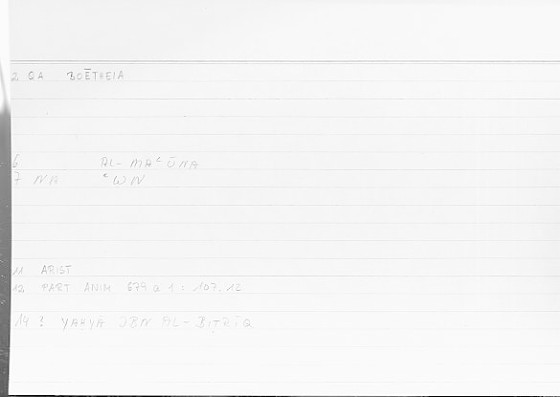 2 QA BOĒTHEIA
6 AL-MAʿŪNA
7 NA ʿWN
11 ARIST
12 PART ANIM 679 a 1 : 107.12
14 ! YAḤYĀ IBN AL-BIṬRĪQ